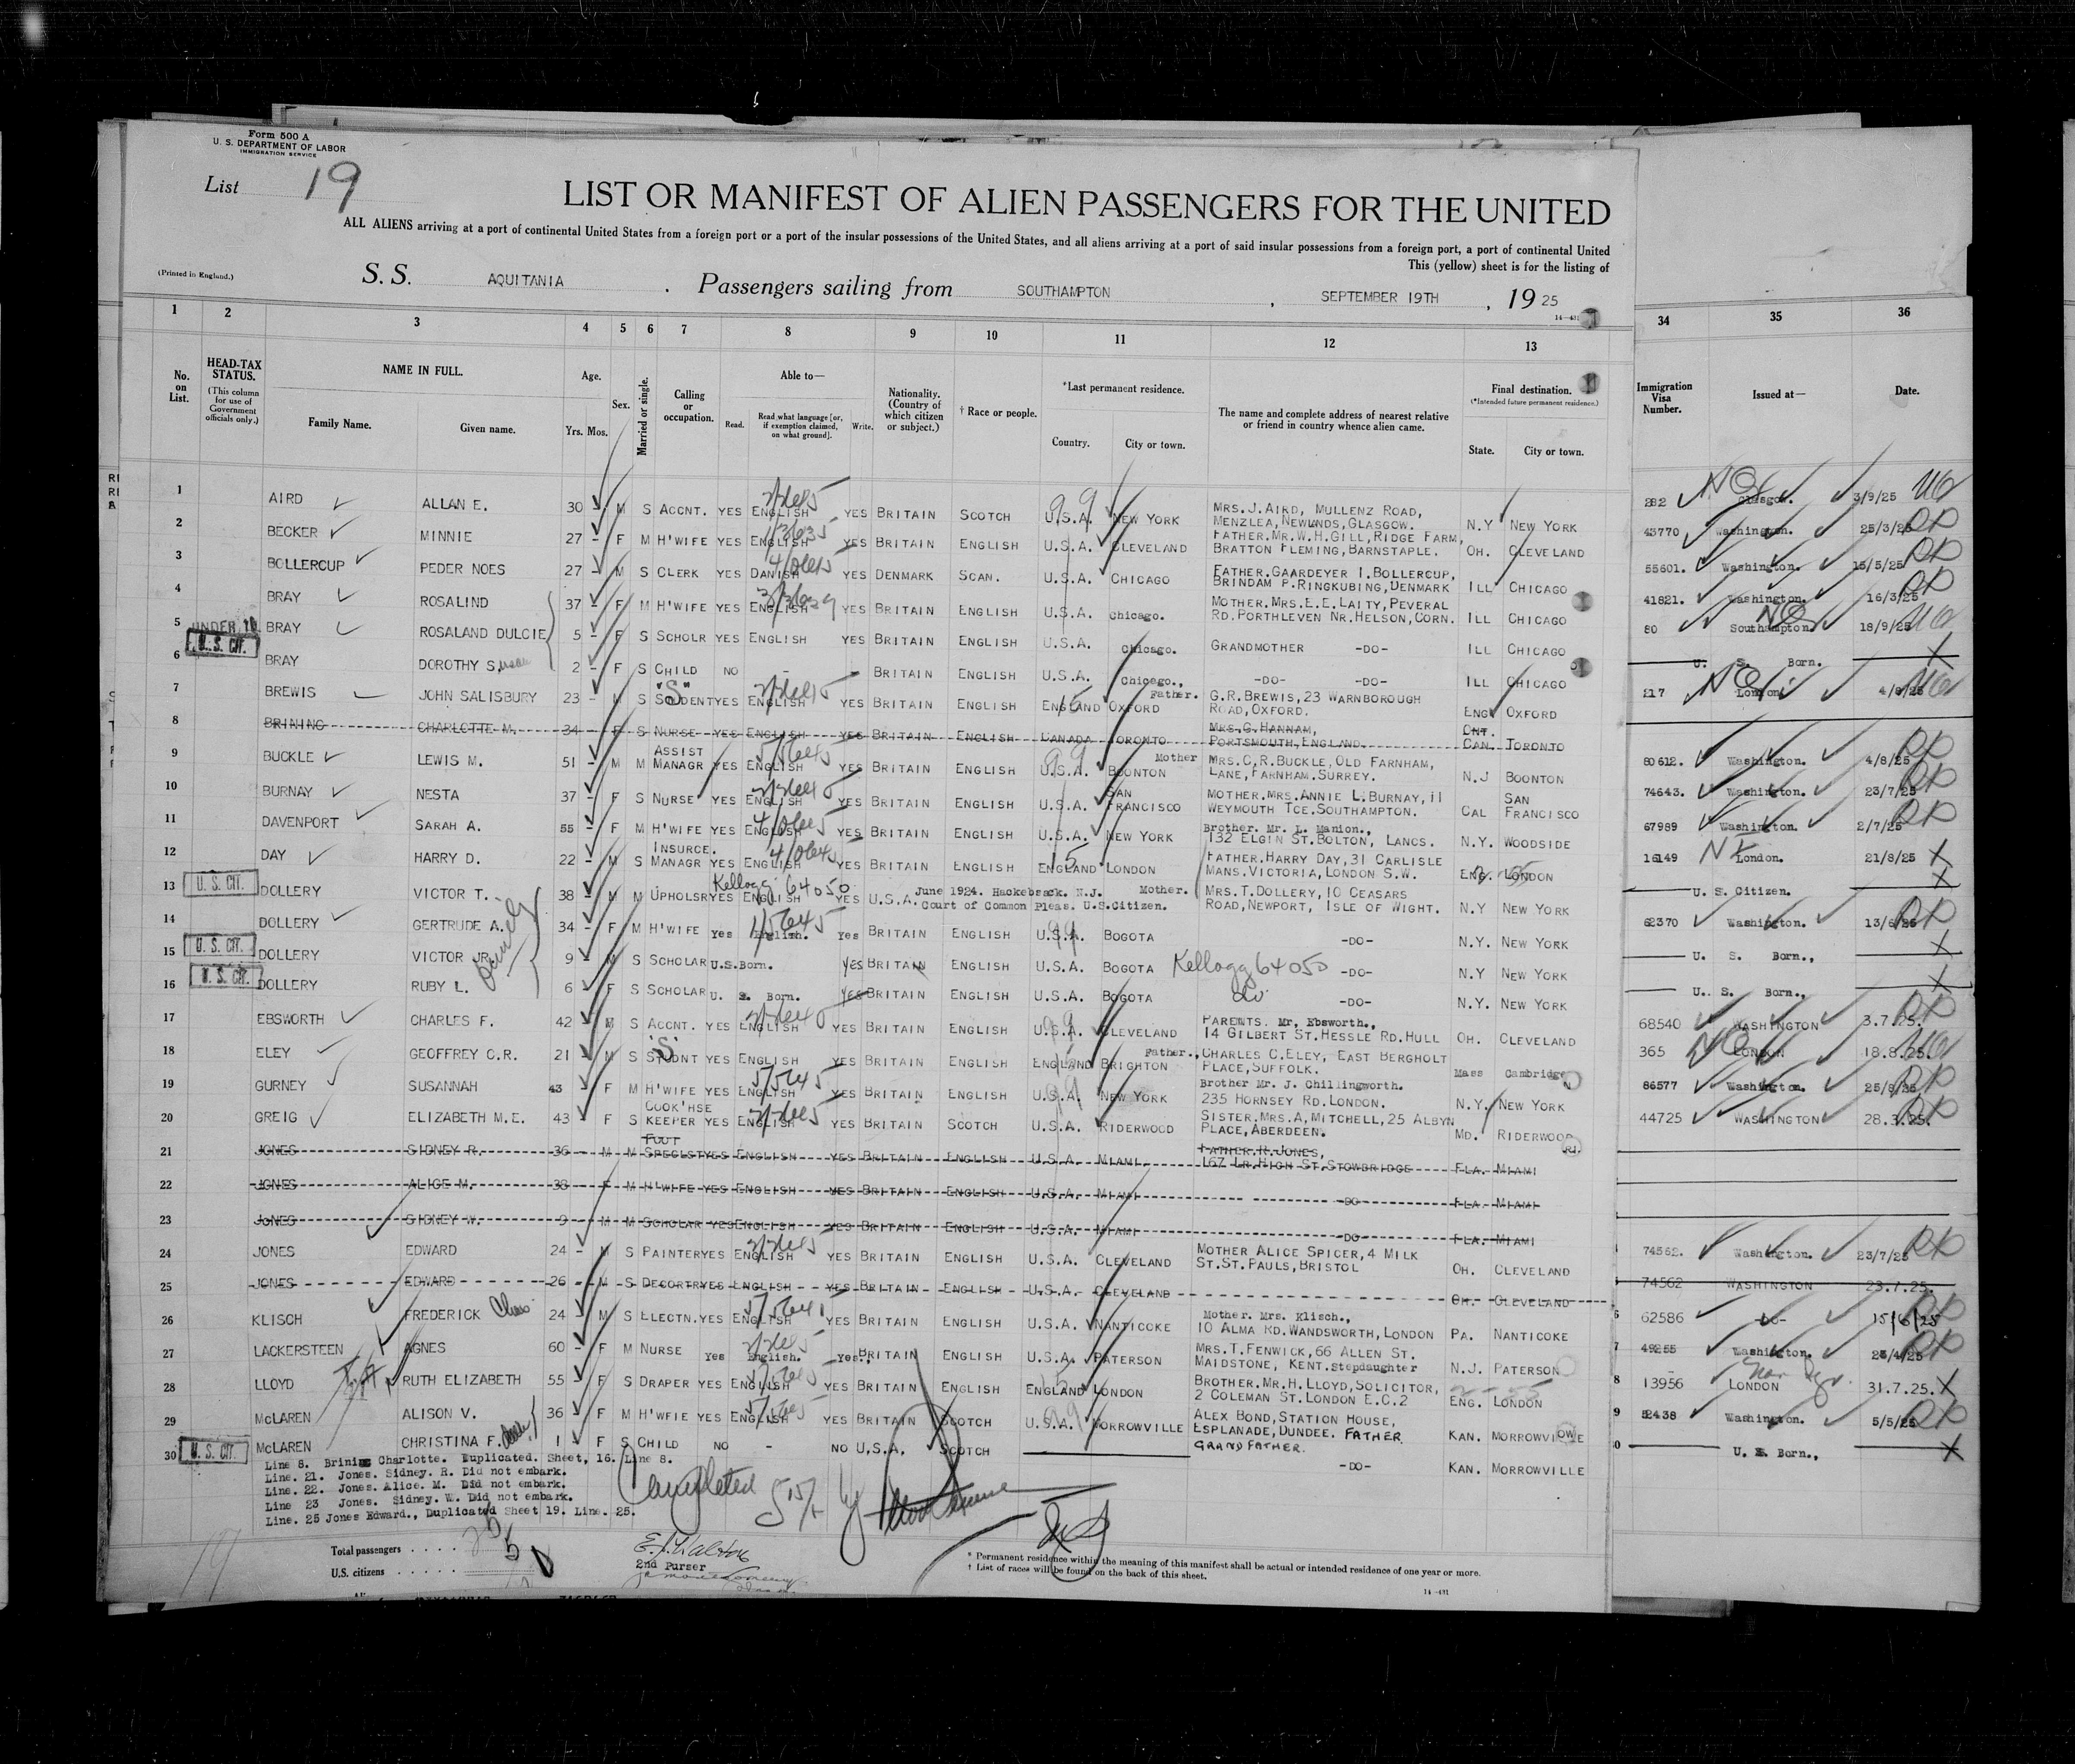 Form 500 A
U. S. DEPARTMENT OF LABOR
IMMIGRATION SERVICE
List 19
LIST OR MANIFEST OF ALIEN PASSENGERS FOR THE UNITED
ALL ALIENS arriving at a port of continental United States from a foreign port or a port of the insular possessions of the United States, and all aliens arriving at a port of said insular possessions from a foreign port, a port of continental United
This (yellow) sheet is for the listing of
(Printed in England.)
S. S. AQUITANIA . Passengers sailing from SOUTHAMPTON , SEPTEMBER 19TH , 19 25
1 2 3 4 5 6 7 8 9 10 11 12 13 34 35 36
No. on List.
HEAD-TAX STATUS. (This column for use of Government officials only.)
NAME IN FULL.
Family Name. Given name.
Age. Yrs. Mos.
Sex.
Married or single.
Calling or occupation.
Able to—
Read. Read what language [or, if exemption claimed, on what ground]. Write.
Nationality. (Country of which citizen or subject.)
† Race or people.
*Last permanent residence.
Country. City or town.
The name and complete address of nearest relative or friend in country whence alien came.
Final destination. (*Intended future permanent residence.)
State. City or town.
Immigration Visa Number.
Issued at—
Date.
1 AIRD ALLAN E. 30 - M S ACCNT. YES ENGLISH YES BRITAIN SCOTCH U.S.A. NEW YORK MRS.J.AIRD, MULLENZ ROAD, MENZLEA, NEWLANDS, GLASGOW. N.Y NEW YORK 282 Glasgow. 3/9/25
2 BECKER MINNIE 27 - F M H'WIFE YES ENGLISH YES BRITAIN ENGLISH U.S.A. CLEVELAND FATHER.MR.W.H.GILL, RIDGE FARM, BRATTON FLEMING, BARNSTAPLE. OH. CLEVELAND 43770 Washington. 25/3/25
3 BOLLERCUP PEDER NOES 27 - M S CLERK YES DANISH YES DENMARK SCAN. U.S.A. CHICAGO FATHER.GAARDEYER I.BOLLERCUP, BRINDAM P.RINGKUBING, DENMARK ILL CHICAGO 55601. Washington. 15/5/25
4 BRAY ROSALIND 37 - F M H'WIFE YES ENGLISH YES BRITAIN ENGLISH U.S.A. Chicago. MOTHER.MRS.E.E.LAITY, PEVERAL RD.PORTHLEVEN NR.HELSON, CORN. ILL CHICAGO 41821. Washington. 16/3/25
5 UNDER 16 BRAY ROSALAND DULCIE 5 - F S SCHOLR YES ENGLISH YES BRITAIN ENGLISH U.S.A. Chicago. GRANDMOTHER -DO- ILL CHICAGO 80 Southampton. 18/9/25
6 U. S. CIT. BRAY DOROTHY Susan 2 - F S CHILD NO - BRITAIN ENGLISH U.S.A. Chicago., -DO- -DO- ILL CHICAGO U. S. Born.
7 BREWIS JOHN SALISBURY 23 - M S "S" STUDENT YES ENGLISH YES BRITAIN ENGLISH ENGLAND OXFORD Father. G.R.BREWIS, 23 WARNBOROUGH ROAD, OXFORD. ENG OXFORD 217 London. 4/9/25
8 BRINING CHARLOTTE M. 34 - F S NURSE YES ENGLISH YES BRITAIN ENGLISH CANADA TORONTO MRS.G.HANNAM, PORTSMOUTH, ENGLAND. ONT. CAN. TORONTO
9 BUCKLE LEWIS M. 51 - M M ASSIST MANAGR YES ENGLISH YES BRITAIN ENGLISH U.S.A. BOONTON Mother MRS.C.R.BUCKLE, OLD FARNHAM, LANE, FARNHAM. SURREY. N.J BOONTON 80612. Washington. 4/8/25
10 BURNAY NESTA 37 - F S NURSE YES ENGLISH YES BRITAIN ENGLISH U.S.A. SAN FRANCISCO MOTHER.MRS.ANNIE L.BURNAY, 11 WEYMOUTH TCE.SOUTHAMPTON. CAL SAN FRANCISCO 74643. Washington. 23/7/25
11 DAVENPORT SARAH A. 55 - F M H'WIFE YES ENGLISH YES BRITAIN ENGLISH U.S.A. NEW YORK Brother. Mr. L. Manion., 132 ELGIN ST.BOLTON, LANCS. N.Y. WOODSIDE 67989 Washington. 2/7/25
12 DAY HARRY D. 22 - M S INSURCE. MANAGR YES ENGLISH YES BRITAIN ENGLISH ENGLAND LONDON FATHER.HARRY DAY, 31 CARLISLE MANS.VICTORIA, LONDON S.W. ENG. LONDON 16149 London. 21/8/25
13 U. S. CIT. DOLLERY VICTOR T. 38 - M M UPHOLSR YES ENGLISH YES U.S.A. Kellogg 64050 June 1924. Hackebsack. N.J. Court of Common Pleas. U.S.Citizen. Mother. MRS.T.DOLLERY, 10 CEASARS ROAD, NEWPORT, ISLE OF WIGHT. N.Y NEW YORK U. S. Citizen.
14 DOLLERY GERTRUDE A. 34 - F M H'WIFE Yes English. Yes BRITAIN ENGLISH U.S.A BOGOTA -DO- N.Y. NEW YORK 62370 Washington. 13/6/25
15 U. S. CIT. DOLLERY VICTOR JR. family 9 - M S SCHOLAR U.S.Born. YES BRITAIN ENGLISH U.S.A. BOGOTA Kellogg 64050 -DO- N.Y NEW YORK U. S. Born.,
16 U. S. CIT. DOLLERY RUBY L. 6 F S SCHOLAR U. S. Born. YES BRITAIN ENGLISH U.S.A. BOGOTA do -DO- N.Y. NEW YORK U. S. Born.,
17 EBSWORTH CHARLES F. 42 - M S ACCNT. YES ENGLISH YES BRITAIN ENGLISH U.S.A. CLEVELAND PARENTS. Mr, Ebsworth., 14 GILBERT ST.HESSLE RD.HULL OH. CLEVELAND 68540 WASHINGTON 3.7.25.
18 ELEY GEOFFREY C.R. 21 - M S "S" STUDNT YES ENGLISH YES BRITAIN ENGLISH ENGLAND BRIGHTON Father., CHARLES C.ELEY, EAST BERGHOLT PLACE, SUFFOLK. Mass Cambridge 365 LONDON 18.8.25.
19 GURNEY SUSANNAH 43 F M H'WIFE YES ENGLISH YES BRITAIN ENGLISH U.S.A. NEW YORK Brother Mr. J. Chillingworth. 235 HORNSEY RD.LONDON. N.Y. NEW YORK 86577 Washington. 25/8/25
20 GREIG ELIZABETH M.E. 43 F S COOK'HSE KEEPER YES ENGLISH YES BRITAIN SCOTCH U.S.A. RIDERWOOD SISTER.MRS.A.MITCHELL, 25 ALBYN PLACE, ABERDEEN. MD. RIDERWOOD 44725 WASHINGTON 28.3.25.
21 JONES SIDNEY R. 36 - M M FOOT SPECLST YES ENGLISH YES BRITAIN ENGLISH U.S.A. MIAMI. FATHER.R.JONES, 167 LR.HIGH ST.STOWBRIDGE FLA. MIAMI
22 JONES ALICE M. 38 - F M H'WIFE YES ENGLISH YES BRITAIN ENGLISH U.S.A. MIAMI -DO- FLA. MIAMI
23 JONES SIDNEY W. 9 - M M SCHOLAR YES ENGLISH YES BRITAIN ENGLISH U.S.A. MIAMI -DO- FLA. MIAMI
24 JONES EDWARD 24 - M S PAINTER YES ENGLISH YES BRITAIN ENGLISH U.S.A. CLEVELAND MOTHER ALICE SPICER, 4 MILK ST.ST.PAULS, BRISTOL OH. CLEVELAND 74562. Washington. 23/7/25
25 JONES EDWARD 26 - M S DECORTR YES ENGLISH YES BRITAIN ENGLISH U.S.A. CLEVELAND OH. CLEVELAND 74562 WASHINGTON 23.7.25.
26 KLISCH FREDERICK Chas 24 - M S ELECTN. YES ENGLISH YES BRITAIN ENGLISH U.S.A. NANTICOKE Mother. Mrs. Klisch., 10 ALMA RD.WANDSWORTH, LONDON PA. NANTICOKE 62586 -DO- 15/6/25
27 LACKERSTEEN AGNES 60 - F M NURSE Yes English. Yes., BRITAIN ENGLISH U.S.A. PATERSON MRS.T.FENWICK, 66 ALLEN ST. MAIDSTONE, KENT. Stepdaughter N.J. PATERSON 49255 Washington. 23/4/25
28 LLOYD RUTH ELIZABETH 55 F S DRAPER YES ENGLISH YES BRITAIN ENGLISH ENGLAND LONDON BROTHER.MR.H.LLOYD, SOLICITOR, 2 COLEMAN ST.LONDON E.C.2 ENG. LONDON 13956 LONDON 31.7.25.
29 McLAREN ALISON V. 36 - F M H'WFIE YES ENGLISH YES BRITAIN SCOTCH U.S.A. MORROWVILLE ALEX BOND, STATION HOUSE, ESPLANADE, DUNDEE. FATHER KAN. MORROWVILLE 52438 Washington. 5/5/25
30 U. S. CIT. McLAREN CHRISTINA F. 1 - F S CHILD NO - NO U.S.A. SCOTCH GRANDFATHER. -DO- KAN. MORROWVILLE U. S. Born.,
Line 8. Brining Charlotte. Duplicated. Sheet, 16. Line 8.
Line. 21. Jones. Sidney. R. Did not embark.
Line. 22. Jones. Alice. M. Did not embark.
Line 23 Jones. Sidney. W. Did not embark.
Line. 25 Jones Edward., Duplicated Sheet 19. Line. 25.
Completed
Total passengers . . . .
U.S. citizens . . . . .
2nd Purser
* Permanent residence within the meaning of this manifest shall be actual or intended residence of one year or more.
† List of races will be found on the back of this sheet.
14-431